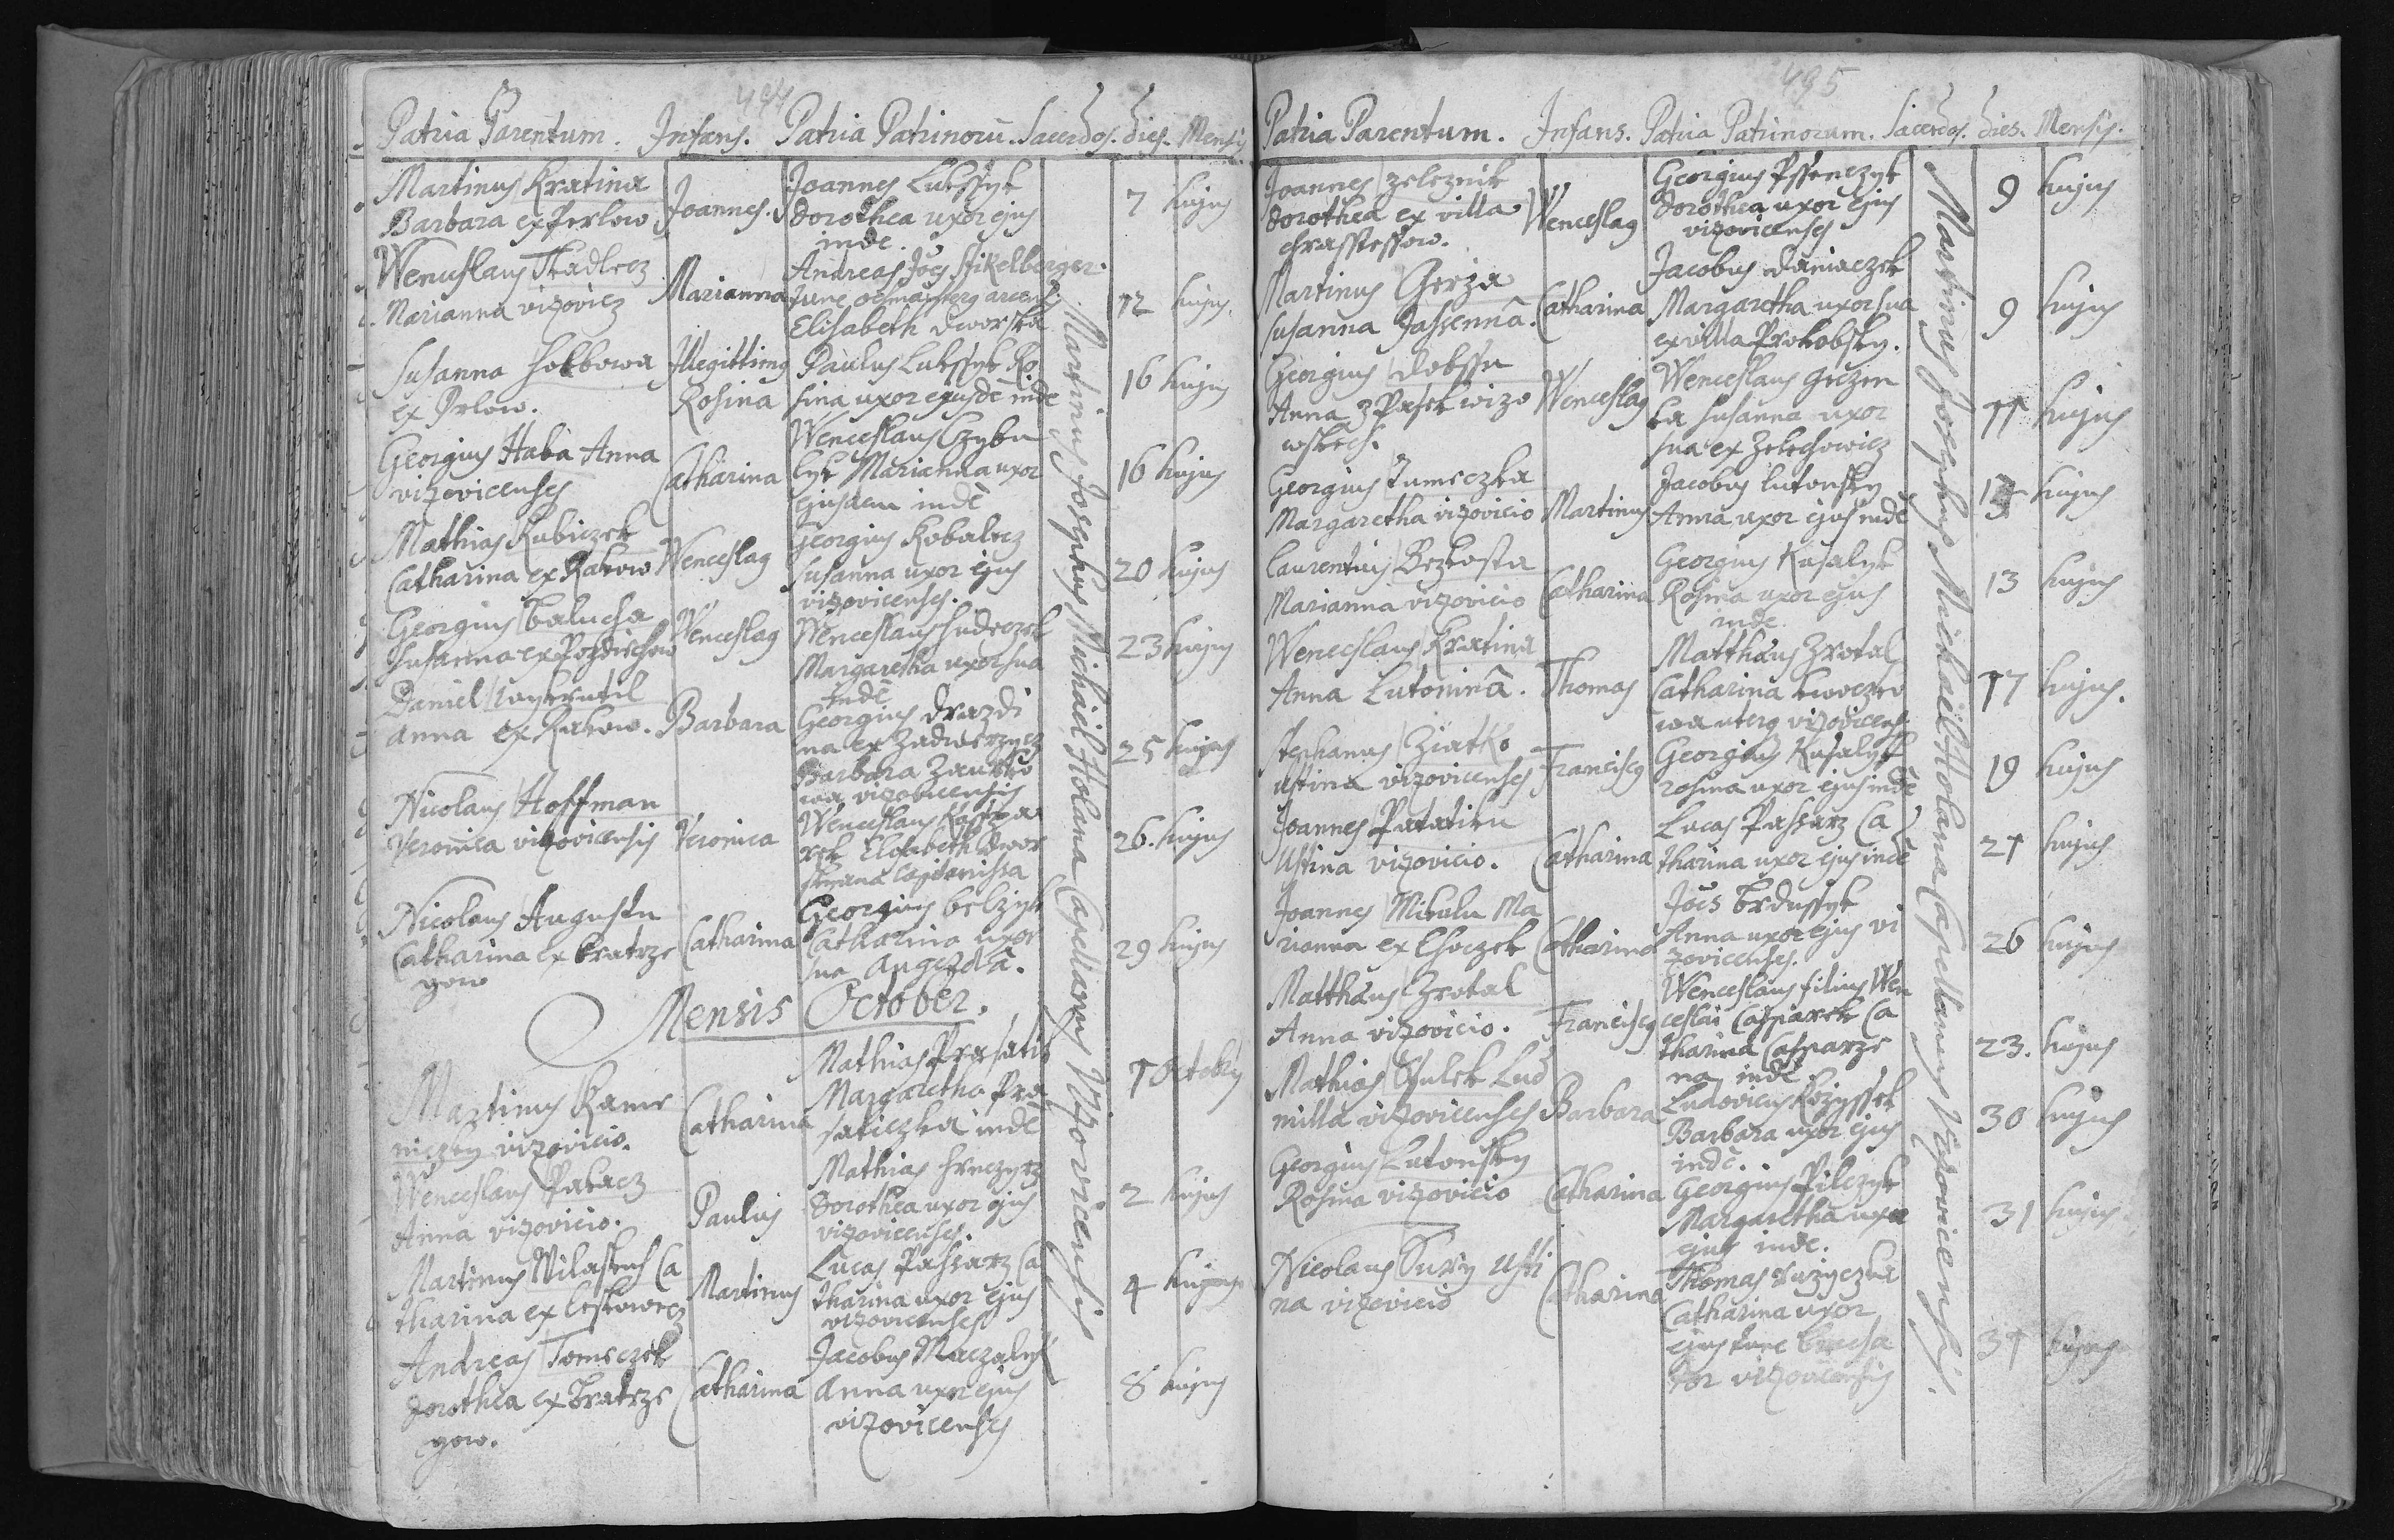 494
Patria Parentum. Infans. Patria Patrinorũ. Sacerdos. Dies. Mensis
Martinus Kratina
Barbara ex Perlow.
Joannes.
Joannes Lukssyk
Dorothea uxor ejus
inde.
7 hujus
Wenceslaus Tkadlecz
Marianna vizovicz
Marianna
Andreas Joes Stikelberger
Elisabeth Dworska
12 hujus.
Susanna
ex Orlow.
Illegittimg
Rosina
Paulus Lukssyk Ro
sina uxor ejusdē inde
16 hujus
Georgius Haba Anna
vizovicenses
Catharina
Wenceslaus Czybu
lyk Marianna uxor
ejusdem inde
16 hujus
Mathias Kubiczek
Catharina ex Rakow
Wenceslag
Georgius Kobalecz
Susanna uxor ejus
vizovicenses.
20 hujus
Georgius Balucha
Susanna ex Pozdiechow
Wenceslag
Wenceslaus Hudeczek
Margaretha uxor sua
inde
23 hujus
Daniel
Anna ex Rakow.
Barbara
Georgius Drazdi
na ex Zadwerzycz
Barbara
wa vizovicensis
25 hujus
Nicolaus Hoffman
Veronica vizovicensis
Veronica
Wenceslaus
Elisabeth Dwor
26. hujus
Nicolaus Augustu
Catharina ex Bratrze
gow
Catharina
Georgius belzyk
Catharina uxor
sua Augezdã.
29 hujus
Mensis October.
Martinus Kame
niczky vizovicio.
Catharina
Mathias Prasatik
Margaretha Pra
saticzka inde
1 Octobris
Wenceslaus Palacz
Anna vizovicio.
Paulus
Mathias
Dorothea uxor ejus
vizovicenses.
2 hujus
Martinus Wilastus Ca
tharina ex Leskowecz
Martinus
Lucas Passarz Ca
tharina uxor ejus
vizovicenses
4 hujus
Andreas Tomeczek
Dorothea ex Bratrze
gow.
Catharina
Jacobus Maczalyk
Anna uxor ejus
vizovicenses
8 hujus
Martinus Josephus Michaël Holana Capellanus Vizovicensis
495
Patria Parentum. Infans. Patria Patrinorum. Sacerdos. Dies. Mensis.
Joannes Zeleznik
Dorothea ex villa
chrasstessow.
Wenceslag
Georgius Pssenczyk
Dorothea uxor ejus
vizovicenses
9 hujus
Martinus Gerza
Susanna Jassennã.
Catharina
Jacobus Daniaczek
Margaretha uxor sua
ex villa Prohobsky.
9 hujus
Georgius Dobssu
Anna z Pasek wizo
wskech.
Wenceslag
Wenceslaus Grezen
ka Susanna uxor
sua ex Zelechowicz
11 hujus
Georgius Tumeczka
Margaretha vizovicio
Martinus
Jacobus Lutonsky
Anna uxor ejus inde
13 hujus
Laurentius Bezkosta
Marianna vizovicio
Catharina
Georgius Kusalyk
Rosina uxor ejus
inde.
13 hujus
Wenceslaus Kratina
Anna Lutoninã.
Thomas
Matthäus Zrotal
Catharina
wa uterq vizovicens
17 hujus.
Stephanus Ziatko
Ustina vizovicenses
Franciscg
Georgius Kusalyk
rosina uxor ejus inde
19 hujus
Joannes Patatiku
Ustina vizovicio.
Catharina
Lucas Passarz Ca
tharina uxor ejus inde
21 hujus
Joannes Mikulu Ma
rianna ex Lhoczek
Catharina
Joes Brdussyk
Anna uxor ejus vi
zovicenses.
26 hujus
Matthäus Zrotal
Anna vizovicio.
Franciscg
Wenceslaus filius Wen
ceslai Casparek Ca
tharina Casparze
na inde.
23. hujus
Mathias Ssulek Lud
milla vizovicenses
Barbara
Ludovicus Kozyssek
Barbara uxor ejus
inde.
30 hujus
Georgius Lutonsky
Rosina vizovicio
Catharina
Georgius Pilczyk
Margaretha uxor
ejus inde.
31 hujus
Nicolaus Sury Usti
na vizovicio
Catharina
Thomas ruzyczka
Catharina uxor
ejus
vizovicensis
31 hujus
Martinus Josephus Michaël Holana Capellanus Vizovicensis.